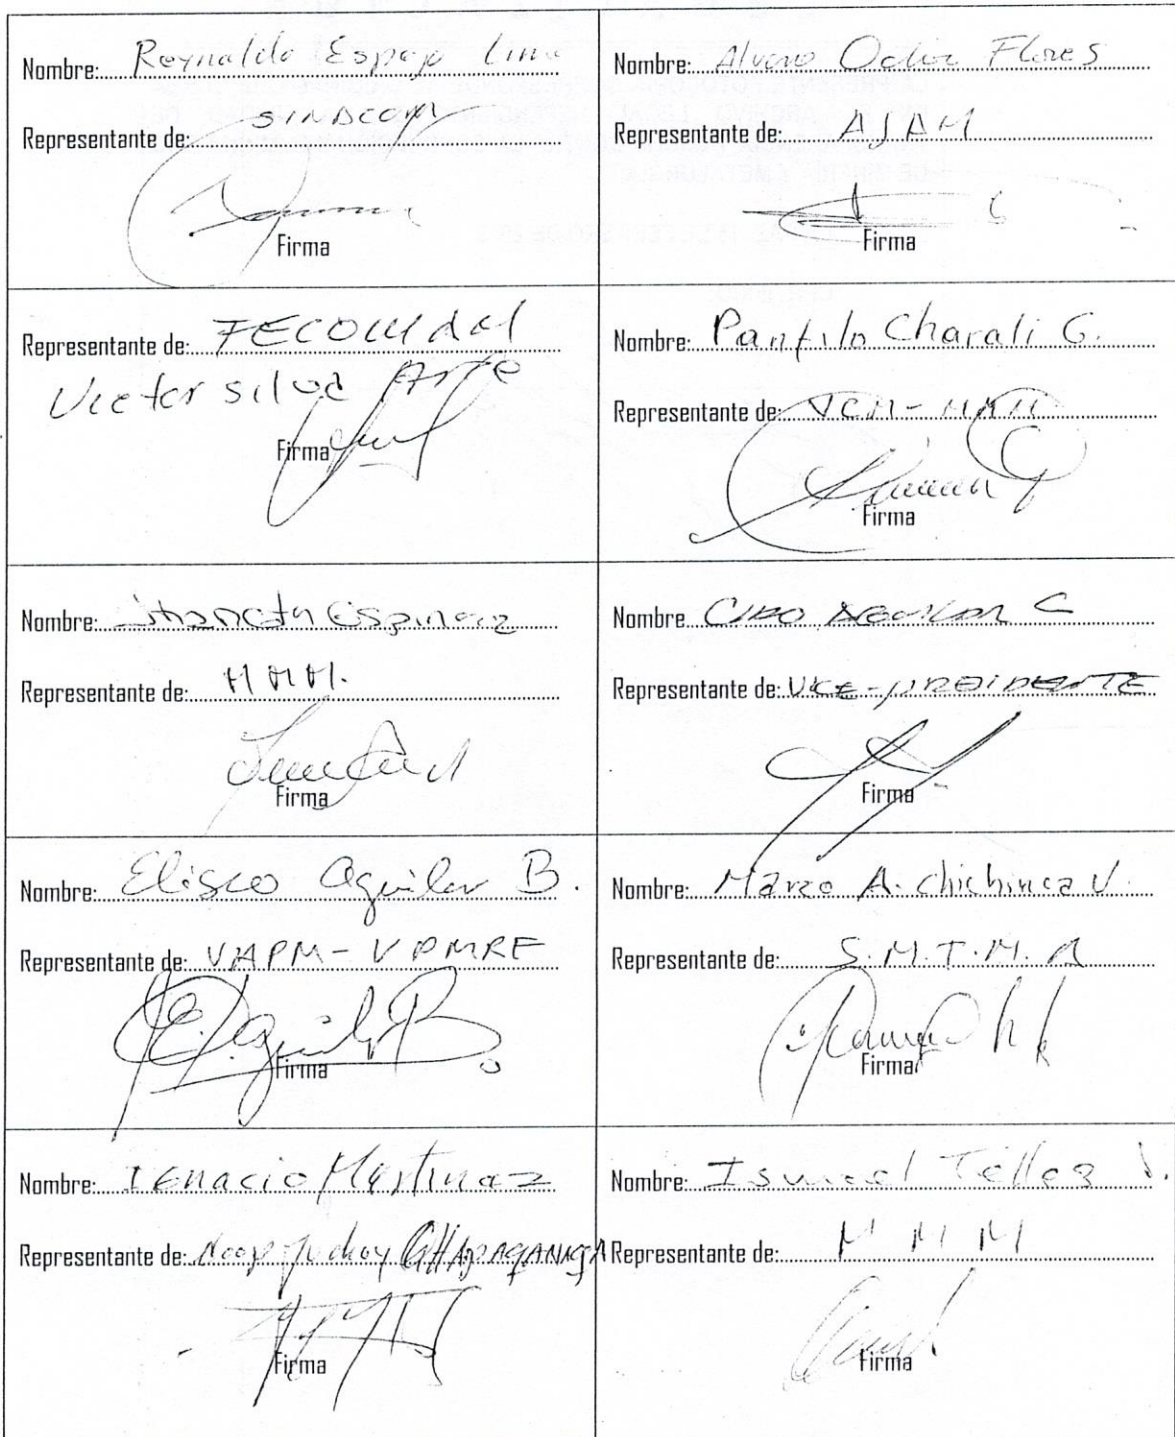 Nombre: Reynaldo Espejo Lima
Representante de: SINDCOM
Firma
Nombre: Alvaro Ochoa Flores
Representante de: AJAM
Firma
Representante de: FECOMMAN
Victor Silva Arte
Firma
Nombre: Panfilo Charali G.
Representante de: VCM-MMM
Firma
Nombre: Jhaneth Espinoza
Representante de: MMM.
Firma
Nombre CIRO AGUILAR C
Representante de: VICE-PRESIDENTE
Firma
Nombre: Eliseo Aguilar B.
Representante de: VAPM-VPMRF
Firma
Nombre: Marco A. Chichinca V.
Representante de: S.M.T.M.A
Firma
Nombre: IGNACIO Martinaz
Representante de:
Firma
Nombre: Ismael Téllez
Representante de: M M M
Firma